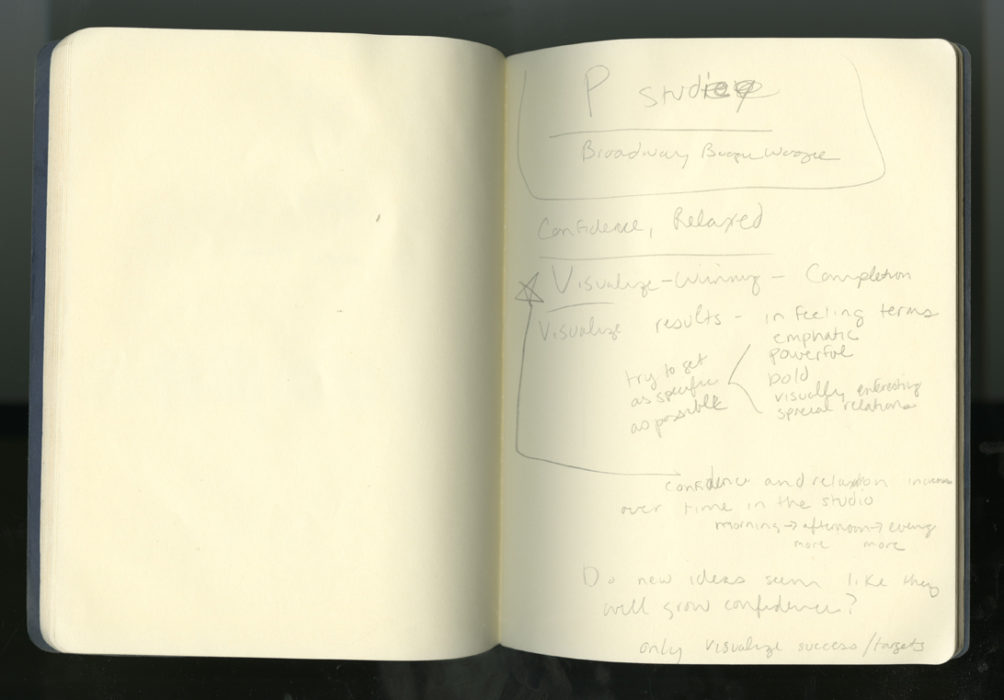 P Studi
Broadway Boogie Woogie
Confidence, Relaxed
Visualize - Winning - Completion
Visualize results - in feeling terms
emphatic
powerful
bold
visually interesting
special relations
try to get
as specific
as possible
confidence and relaxation increase
over time in the studio
morning → afternoon → evening
more more
Do new ideas seem like they
will grow confidence?
only visualize success/targets